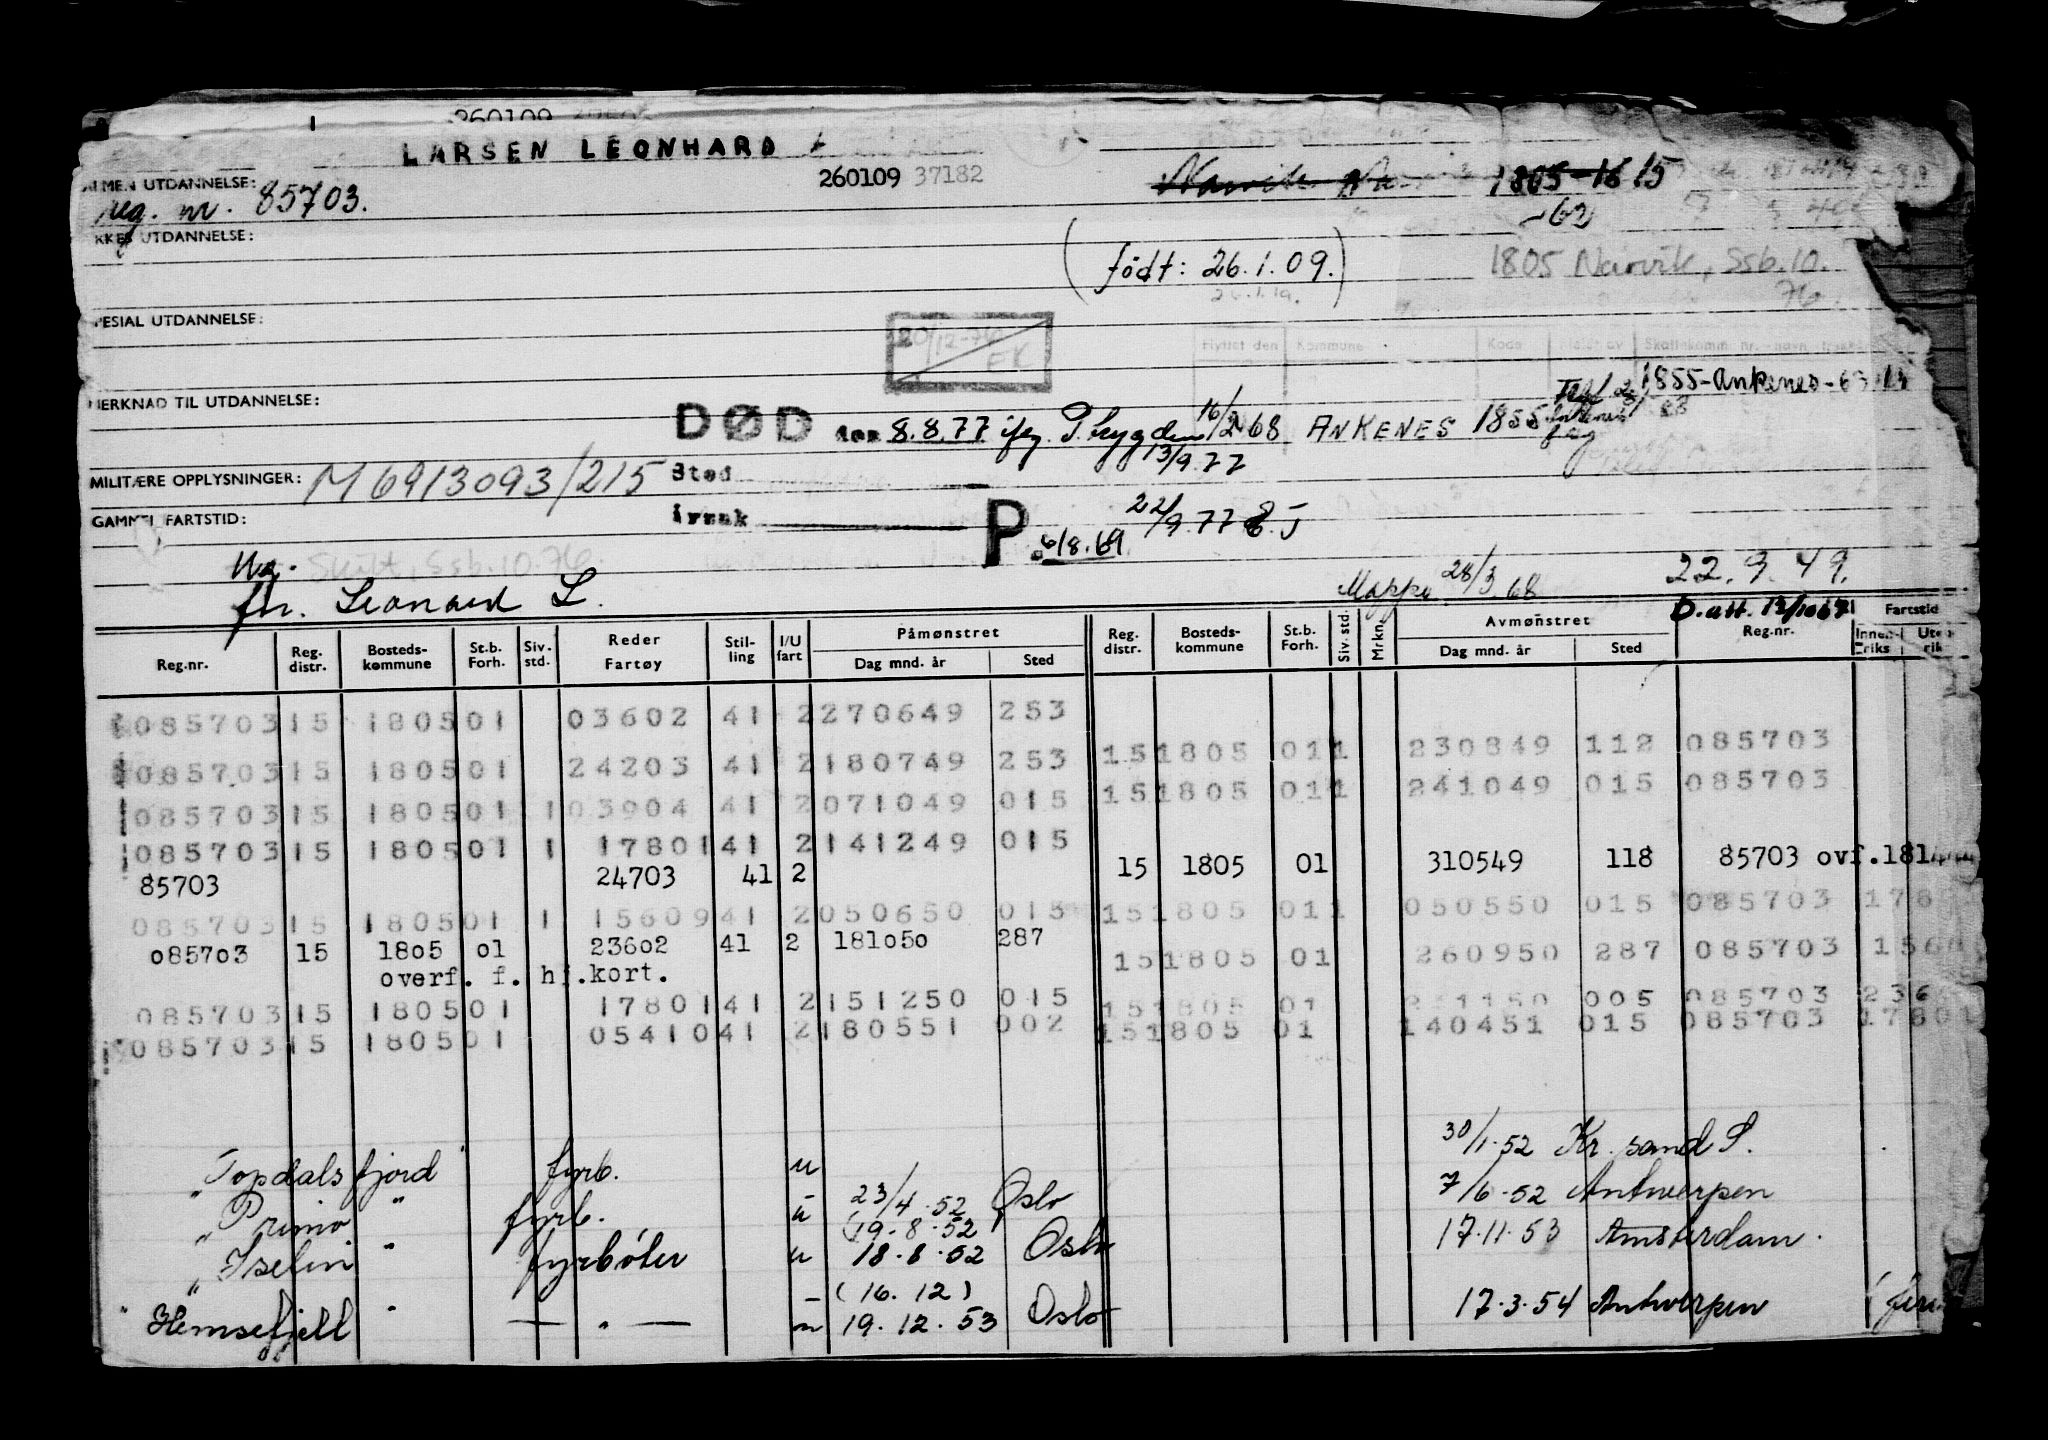 260109
LARSEN LEONHARD
260109 37182
1805-1615
-62
ALMEN UTDANNELSE:
reg. nr. 85703.
YRKES UTDANNELSE:
(født: 26.1.09.)
1805 Narvik, Ssb.10.
76.
SPESIAL UTDANNELSE:
20/12-76
EK
Flyttet den Kommune Kode Meldt av Skattekomm. nr. - navn
1855-Ankenes-63
MERKNAD TIL UTDANNELSE:
DØD den 8.8.77 ifg. P.trygden 16/2 68 ANKENES 1855
13/9.77
MILITÆRE OPPLYSNINGER: M6913093/215
Sted
GAMMEL FARTSTID:
årsak
P
6/8.69.
22/9.77 J
Skatt, Ssb.10.76.
fhr. Leonard L.
Mappe 28/3 68
22.9.49.
D.att.
Reg.nr. Reg. distr. Bosteds-kommune St.b. Forh. Siv. std. Reder Fartøy Stil-ling I/U fart Påmønstret Dag mnd. år Sted Reg. distr. Bosteds-kommune St.b. Forh. Siv. std. Mrkn. Avmønstret Dag mnd. år Sted Reg.nr. Fartstid Innen-riks Uten-rik
085703 15 1805 01 03602 41 2 270649 253
15 1805 01 1 230849 112 085703
085703 15 1805 01 24203 41 2 180749 253
15 1805 01 1 241049 015 085703
085703 15 1805 01 1 03904 41 2 071049 015
085703 15 1805 01 1 17801 41 2 141249 015
85703 24703 41 2
15 1805 01 310549 118 85703 ovf.1814
085703 15 1805 01 1 15609 41 2 050650 015
15 1805 01 1 050550 015 085703 178
085703 15 1805 01 23602 41 2 181050 287
15 1805 01 260950 287 085703 156
overf. f. hj.kort.
085703 15 1805 01 17801 41 2 151250 015
15 1805 01 005 085703 236
085703 15 1805 01 05410 41 2 180551 002
15 1805 01 140451 015 085703 17801
"Topdalsfjord" fyrb. u 30/1.52 Kr. sand S.
"Primo" fyrb. u 23/4.52 Oslo 7/6.52 Antwerpen
(19.8.52
"Iselin" fyrbøter u 18.8.52 Oslo 17.11.53 Amsterdam.
(16.12)
"Hemsefjell" — " — u 19.12.53 Oslo 17.3.54 Antwerpen